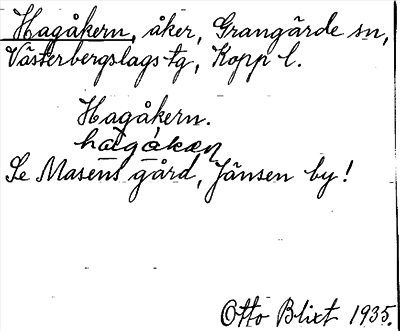 Hagåkern, åker, Grangärde sn,
Västerbergslags tg, Kopp l.
Hagåkern.
hagåkæņ
Se Masens gård, Jänsen by!
Otto Blixt 1935.